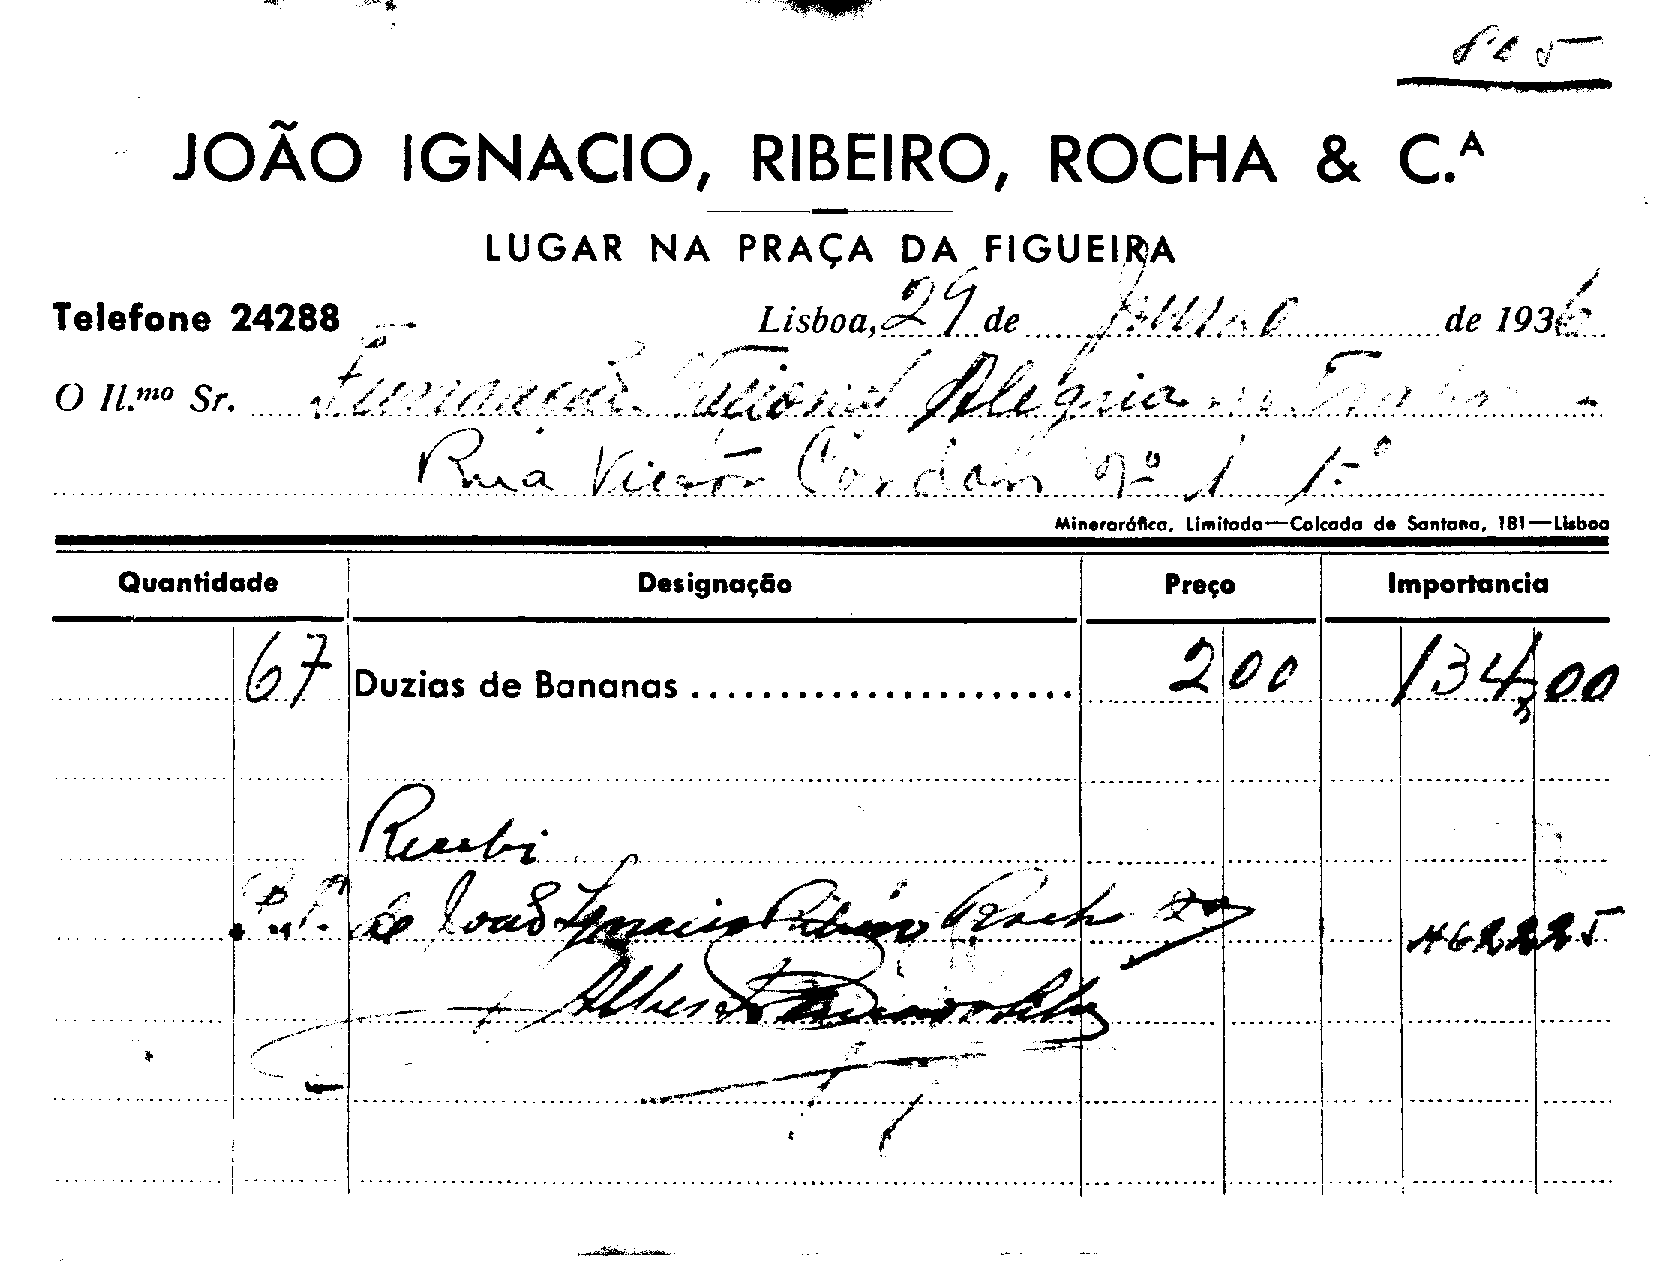 JOÃO IGNACIO, RIBEIRO, ROCHA & C.A
LUGAR NA PRAÇA DA FIGUEIRA
Telefone 24288
Lisboa, 29 de de 1936
O Il.mo Sr. Alegria no Trabalho
Rua Victor Cordon nº 1 1.º
Minerográfica, Limitada—Calçada de Santana, 181—Lisboa
Quantidade Designação Preço Importancia
67 Duzias de Bananas ...................... 2 00 134,00
Recebi
P. P. de João Ignacio Ribeiro Rocha
Alberto